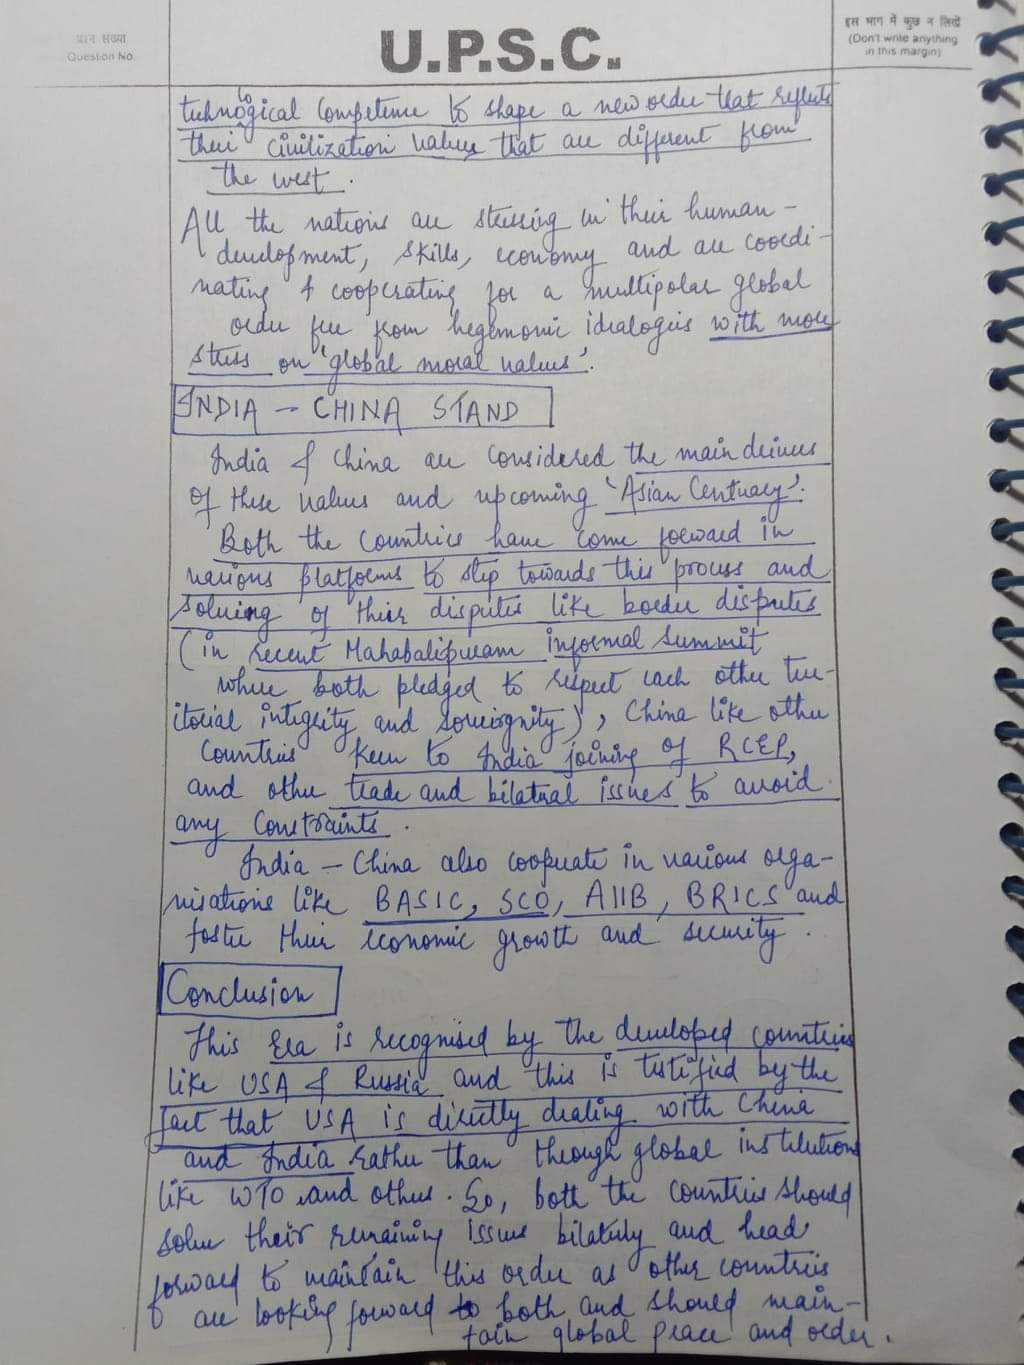 प्रश्न संख्या
Question No.
U.P.S.C.
इस भाग में कुछ न लिखें
(Don't write anything
in this margin)
technological competence to shape a new order that reflects
their civilization values that are different from
the west.
All the nations are stressing in their human-
development, skills, economy and are coordi-
nating & cooperating for a multipolar global
order free from hegemonic idealogies with more
stress on 'global moral values'.
INDIA - CHINA STAND
India & China are considered the main drivers
of these values and upcoming 'Asian Centuary'.
Both the countries have come forward in
various platforms to step towards this process and
solving of their disputes like border disputes
(in recent Mahabalipuram informal summit
where both pledged to respect each other terr-
itorial integrity and soveignity), China like other
countries keen to India joining of RCEP,
and other trade and bilateral issues to avoid
any constraints.
India - China also cooperate in various orga-
nisations like BASIC, SCO, AIIB, BRICS and
foster their economic growth and security.
Conclusion
This Era is recognised by the developed countries
like USA & Russia and this is testified by the
fact that USA is directly dealing with China
and India rather than through global institutions
like WTO and others. So, both the countries should
solve their remaining issues bilaterly and head
forward to maintain this order as other countries
are looking forward to both and should main-
tain global peace and order.